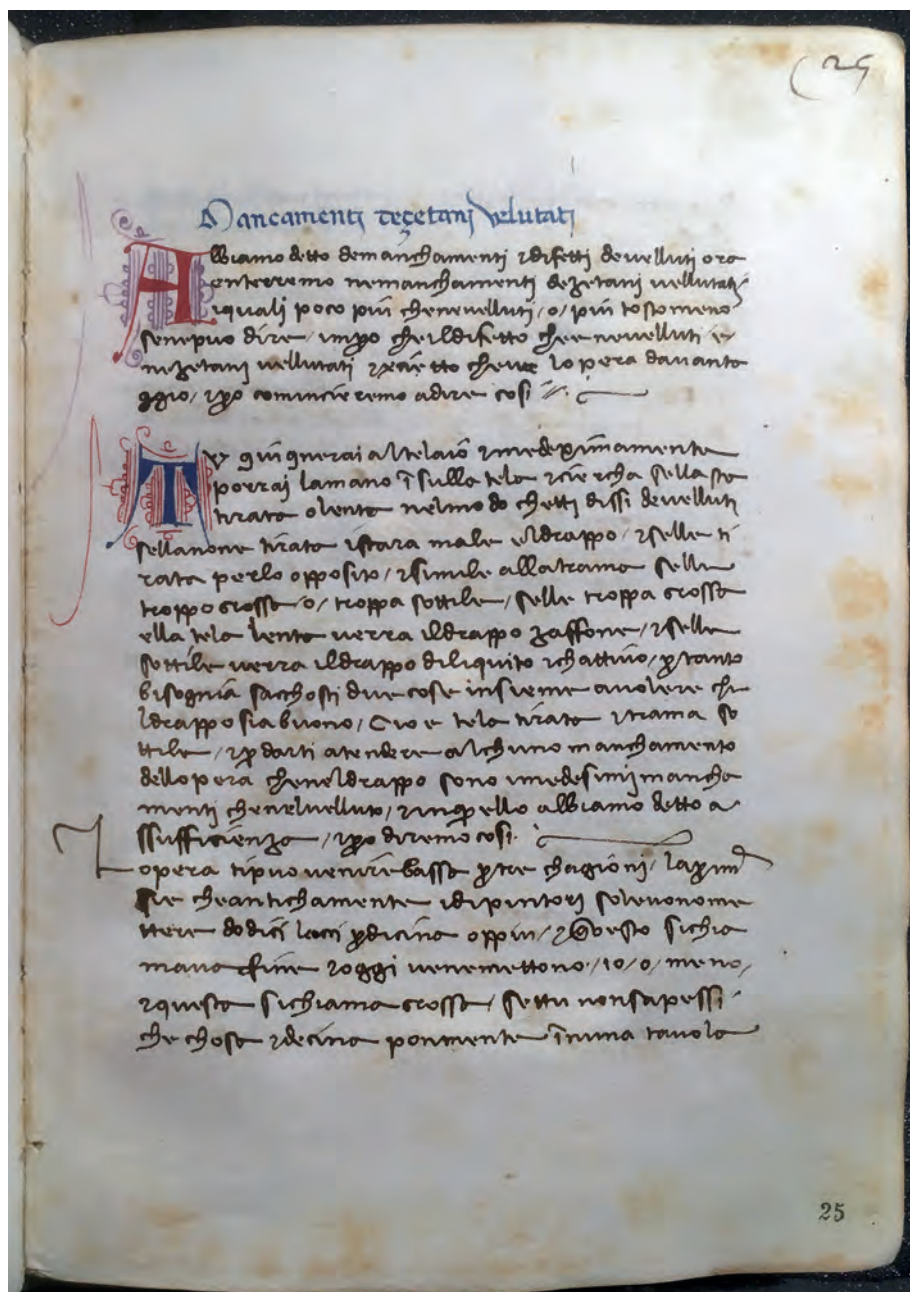 25
Mancamenti deçetani velutati
Abbiamo detto demanchamenti & difetti develluti ora
enterremo nemanchamenti dezetani vellutati
iquali poco piu chenevelluti /o/ piu tosto meno
senepuo dire / impo cheildifetto chee nevelluti e
nezetani vellutati &xcietto cheve lopera davanta
ggio / &po comincieremo adire cosi
Tu giugnerai altelaio &medeximamente
porrai lamano īsulla tela &ciercha sella sta
tirata olenta nelmodo chetti dissi develluti
sellanone tirata istara male eldrappo / &selle ti
rata perlo opposito / &simile allatrama selle
troppo grossa /o/ troppa sottile / selle troppa grossa
ella tela lenta verra ildrappo zaffone / &selle
sottile verra ildrappo diliquito &chattivo / ptanto
bisognia sacchosti due cose insieme avolere che
ldrappo sia buono / Cioe tela tirata &trama so
ttile / &p darti atendere alchuno manchamento
dellopera cheneldrappo sono imedesimi mancha
menti chenelvelluto / &inqello abbiamo detto a
ssufficienza / &po diremo cosi
Lopera tipuo venire bassa ptre chagioni / lapima
sie cheantichamente idipintori solevonome
ttere dodici lacci pdicina oppiu / &Questo sichia
mava fine &oggi venemettono /10/o/ meno /
&questa sichiama grossa / settu nonsapessi
che chosa &decina ponimente īnuna tavola
25